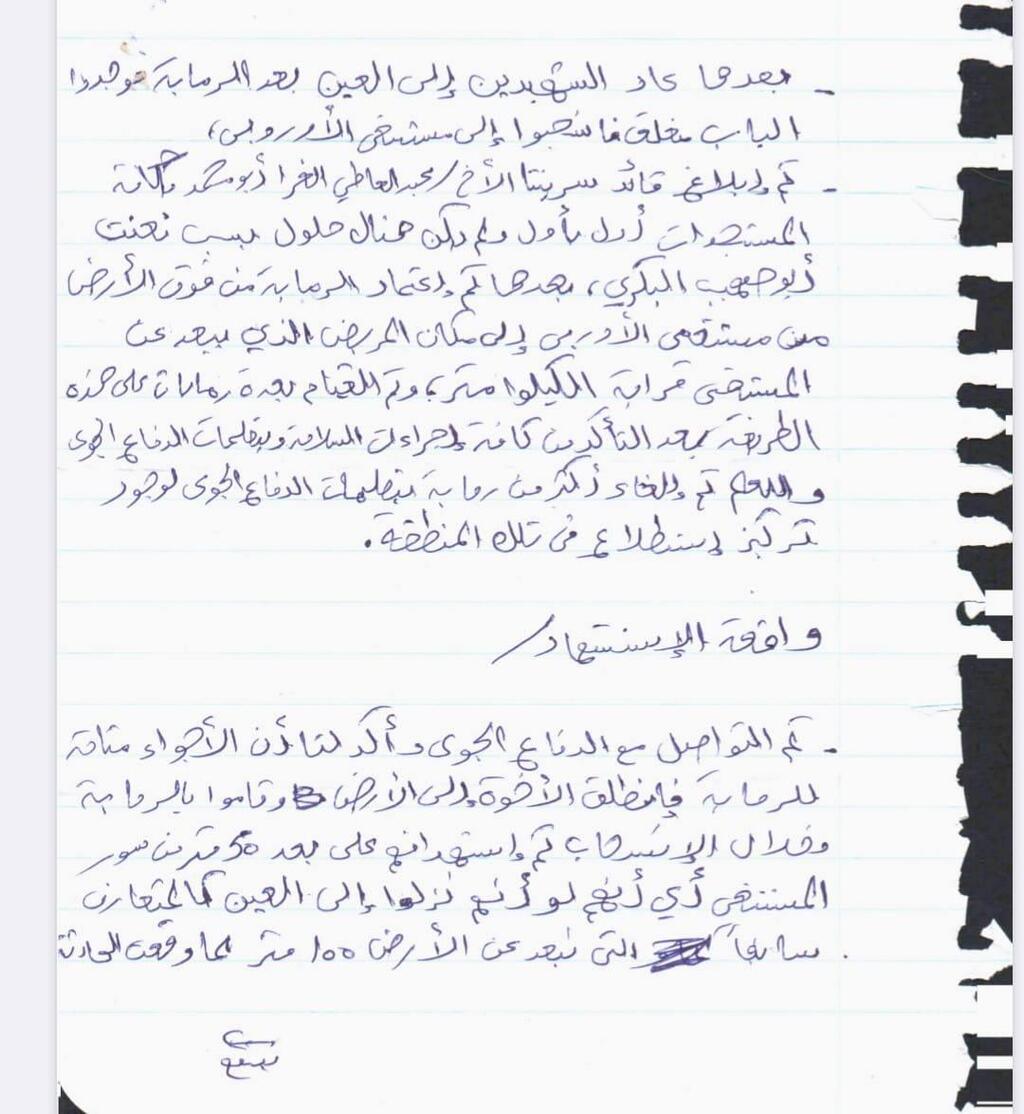 - بعدها عاد الشهيدين إلى العين بعد الرماية فوجدوا
الباب مغلق فانسحبوا إلى مستشفى الأوروبي،
- تم إبلاغ قائد سريتنا الأخ/ عبد العاطي الفرا أبو محمد بكافة
المستجدات أول بأول ولم يكن هنال حلول بسبب تعنت
أبو صهيب البكري، بعدها تم إعتماد الرماية من فوق الأرض
من مستشفى الأوربي إلى مكان المربض الذي يبعد عن
المستشفى قرابة الكيلوا متر، وتم القيام بعدة رمايات على هذه
الطريقة بعد التأكد من كافة إجراءات السلامة وبتعليمات الدفاع الجوى
وتم إلغاء أكثر من رماية بتعليمات الدفاع الجوى لوجود
تركيز إستطلاع في تلك المنطقة.
واقعة الإستشهاد/
- تم التواصل مع الدفاع الجوى وأكد لنا أن الأجواء متاحة
للرماية فإنطلق الأخوة إلى الأرض وقاموا بالرماية
وخلال الإنسحاب تم إستهدافهم على بعد 50 متر من سور
المستشفى أي أنهم لو أنهم نزلوا إلى العين المتعارف
سابقاً التي تبعد عن الأرض 100 متر لما وقعت الحادثة.
يتبع